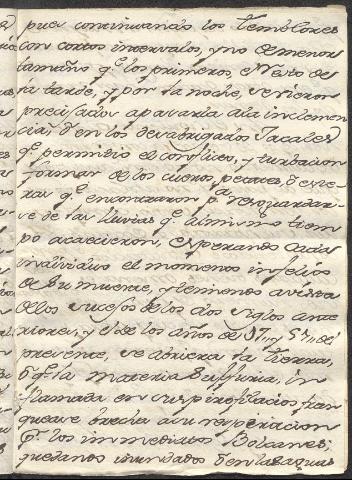 pues continuando los temblores
con cortos intervalos, y no de menor
tamaño q.e los primeros, el resto de
la tarde, y por la noche, se vieron
precisados a pasarla a la inclemen
cia, ó en los desabrigados Jacales
q.e permitio el conflicto, y turbacion
formar de los cueros, petates, ó este
ras q.e encontraron p.a resguardar
se de las lluvias q.e al mismo tiem
po acaecieron, esperando cada
individuo el momento infeliz
de su muerte, y temiendo a vista
de los sucesos de los dos siglos ante
riores, y el de los años de 17,, y 51,, del
presente, se abriera la tierra,
ó q.e la materia sulfuria, in
flamada en sus
quease brecha a su respiracion
p.r los inmediatos Bolcanes;
quedando inundados ó en las aguas